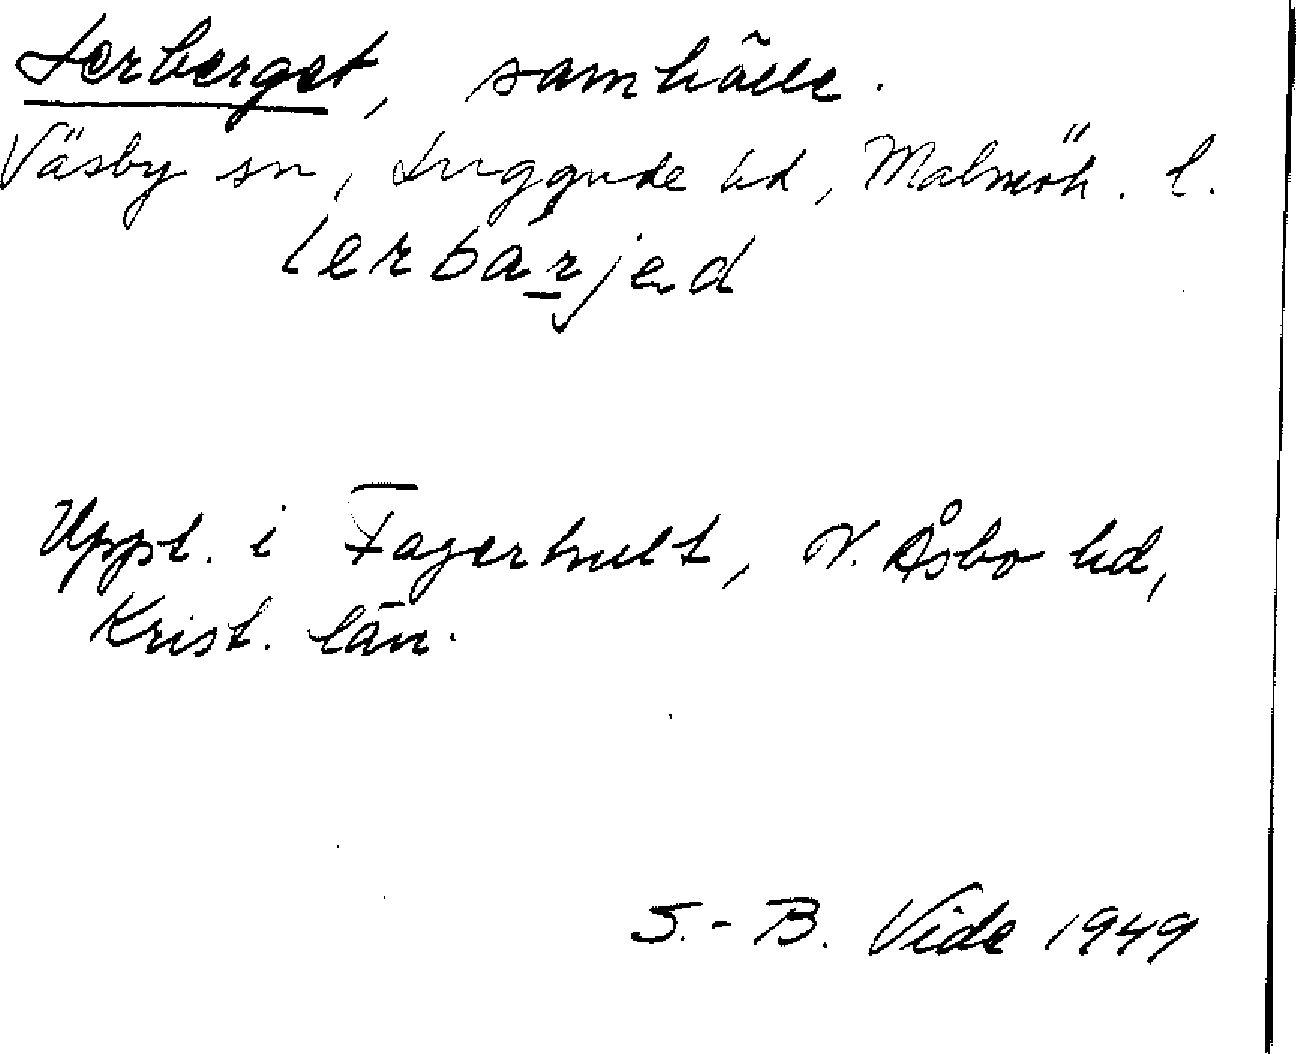 Lerberget, samhälle.
Väsby sn, Luggude hd, Malmöh. l.
lerbarjed
Uppt. i Fagerhult, N. Åsbo hd,
Krist. län.
S.-B. Vide 1949